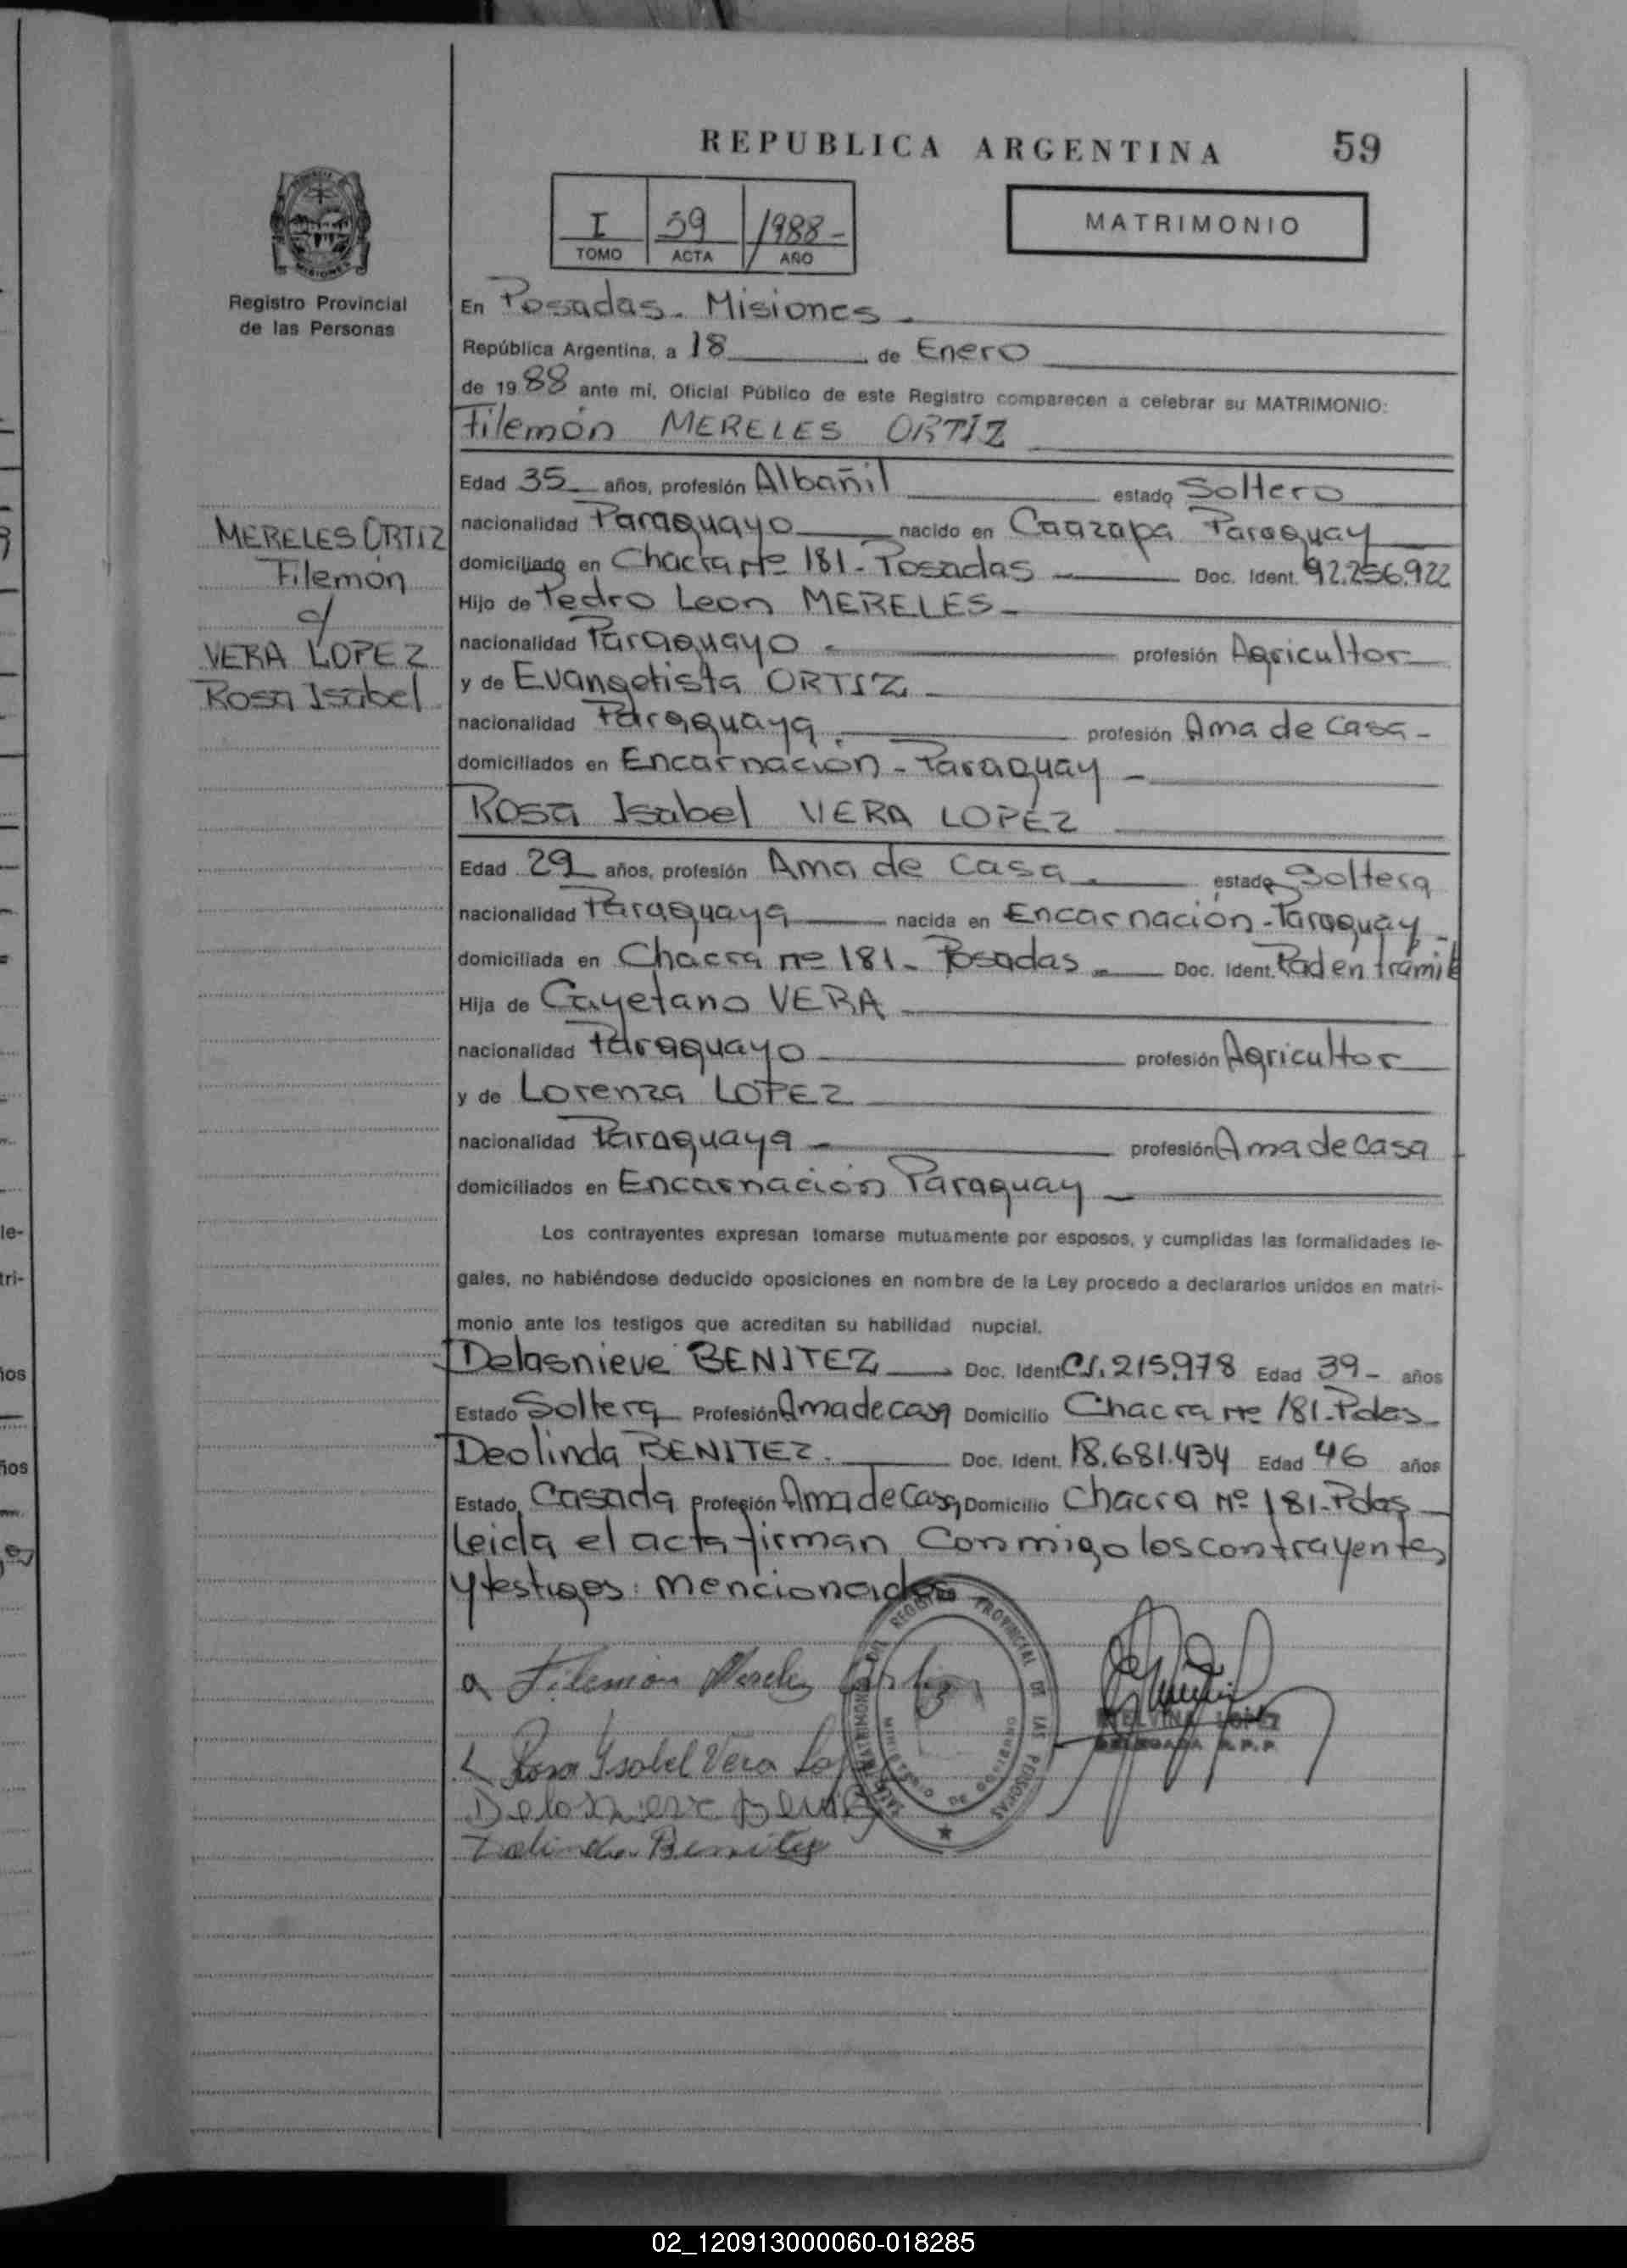 REPUBLICA ARGENTINA 59
I 59 1988-
TOMO ACTA AÑO
MATRIMONIO
Registro Provincial
de las Personas
En Posadas. Misiones.
República Argentina, a 18 de Enero
de 1988 ante mí, Oficial Público de este Registro comparecen a celebrar su MATRIMONIO:
Filemón MERELES ORTÍZ
Edad 35 años, profesión Albañil estado Soltero
nacionalidad Paraguayo nacido en Caazapa Paraguay
domiciliado en Chacra Nº 181 - Posadas Doc. Ident. 92.256.922
Hijo de Pedro Leon MERELES
nacionalidad Paraguayo profesión Agricultor
y de Evangelista ORTIZ
nacionalidad Paraguaya profesión Ama de casa -
domiciliados en Encarnación - Paraguay -
MERELES ORTIZ
Filemón
c/
VERA LOPEZ
Rosa Isabel
Rosa Isabel VERA LOPEZ
Edad 29 años, profesión Ama de casa. estado Soltera
nacionalidad Paraguaya nacida en Encarnación - Paraguay -
domiciliada en Chacra nº 181 - Posadas Doc. Ident. Rad en trámite
Hija de Cayetano VERA
nacionalidad Paraguayo profesión Agricultor
y de Lorenza LOPEZ
nacionalidad Paraguaya profesión Ama de casa
domiciliados en Encarnación Paraguay
Los contrayentes expresan tomarse mutuamente por esposos, y cumplidas las formalidades le-
gales, no habiéndose deducido oposiciones en nombre de la Ley procedo a declararlos unidos en matri-
monio ante los testigos que acreditan su habilidad nupcial.
Delasnieve BENITEZ Doc. Ident C.I. 215.978 Edad 39 - años
Estado Soltera Profesión Ama de casa Domicilio Chacra Nº 181 - Pdas
Deolinda BENITEZ. Doc. Ident. 18.681.434 Edad 46 años
Estado Casada Profesión Ama de Casa Domicilio Chacra Nº 181 - Pdas
leida el acta firman Conmigo los contrayentes
y testigos mencionados
Filemón Mereles
Rosa Ysabel Vera
Delasnieve
Benitez
REGISTRO PROVINCIAL DE LAS PERSONAS
MINISTERIO DE GOBIERNO
LOPEZ
DELEGADA R.P.P.
02_120913000060-018285